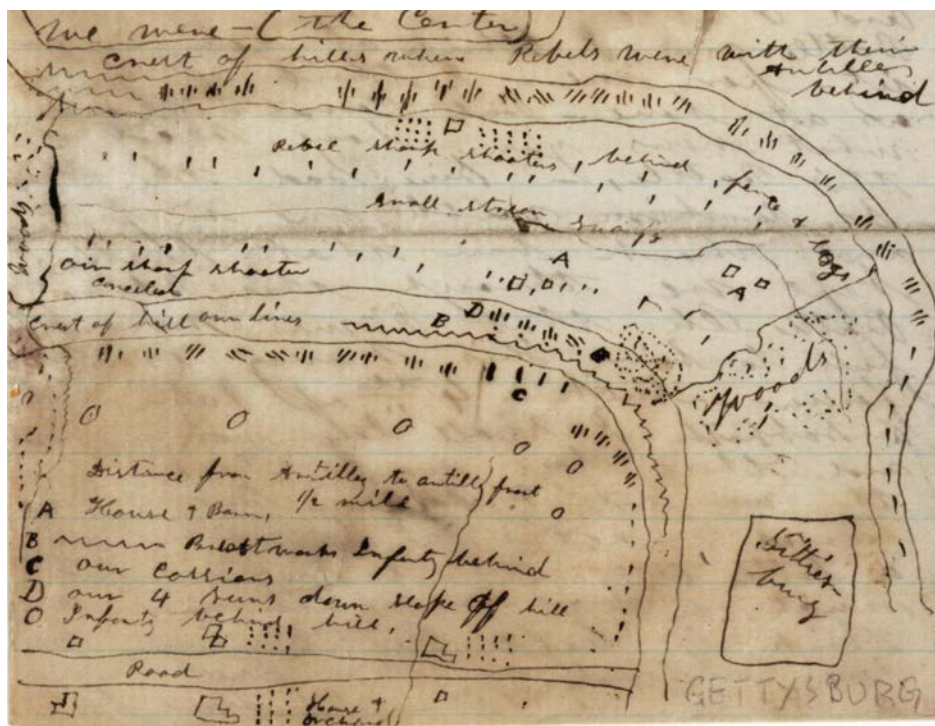 we were - (the Center)
Crest of hills where Rebels were with their
Artillery
behind
Rebel sharp shooters, behind fence & logs
small stream
swamp
A
A
our sharp shooter
concealed
Crest of hill our lines
B
D
B
C
Woods
Distance from Artillery to artillery front
1/2 mile
A House & Barn,
B Breastworks Infanty behind
C our Cassions
D our 4 guns down slope off hill
O Infanty behind hill,
Road
House &
orchard
Getties
burg
GETTYSBURG